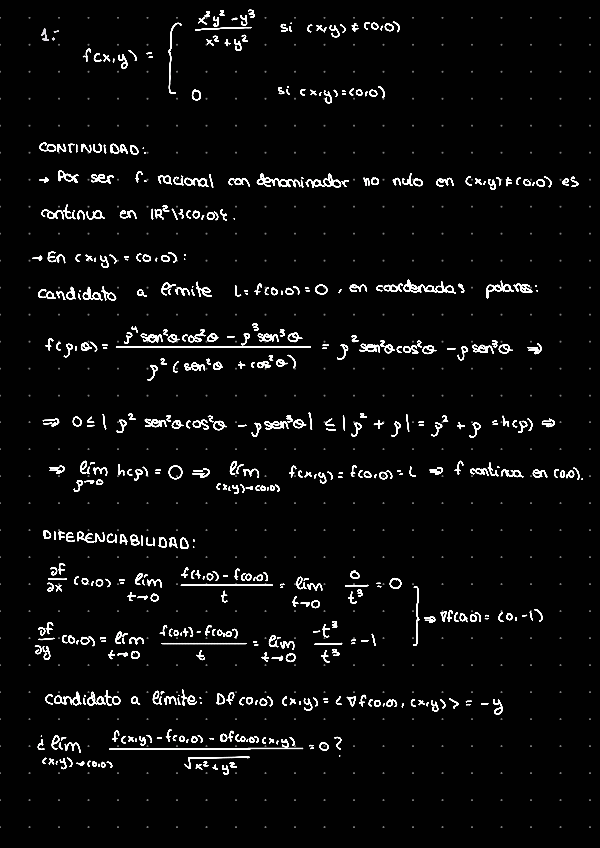 1.-
f(x,y) = { (x²y² - y³)/(x² + y²) si (x,y) ≠ (0,0)
0 si (x,y) = (0,0)
CONTINUIDAD:
→ Por ser f. racional con denominador no nulo en (x,y) ≠ (0,0) es
continua en ℝ²\{(0,0)}.
→ En (x,y) = (0,0):
candidato a límite L = f(0,0) = 0, en coordenadas polares:
f(ρ,θ) = (ρ⁴ sen²θ cos²θ - ρ³ sen³θ)/(ρ² (sen²θ + cos²θ)) = ρ² sen²θ cos²θ - ρ sen³θ ⇒
⇒ 0 ≤ | ρ² sen²θ cos²θ - ρ sen³θ | ≤ | ρ² + ρ | = ρ² + ρ = h(ρ) ⇒
⇒ lím_{ρ→0} h(ρ) = 0 ⇒ lím_{(x,y)→(0,0)} f(x,y) = f(0,0) = L ⇒ f continua en (0,0).
DIFERENCIABILIDAD:
∂f/∂x (0,0) = lím_{t→0} (f(t,0) - f(0,0))/t = lím_{t→0} 0/t³ = 0
⇒ ∇f(0,0) = (0,-1)
∂f/∂y (0,0) = lím_{t→0} (f(0,t) - f(0,0))/t = lím_{t→0} -t³/t³ = -1
candidato a límite: Df(0,0)(x,y) = <∇f(0,0), (x,y)> = -y
¿ lím_{(x,y)→(0,0)} (f(x,y) - f(0,0) - Df(0,0)(x,y))/√(x² + y²) = 0?